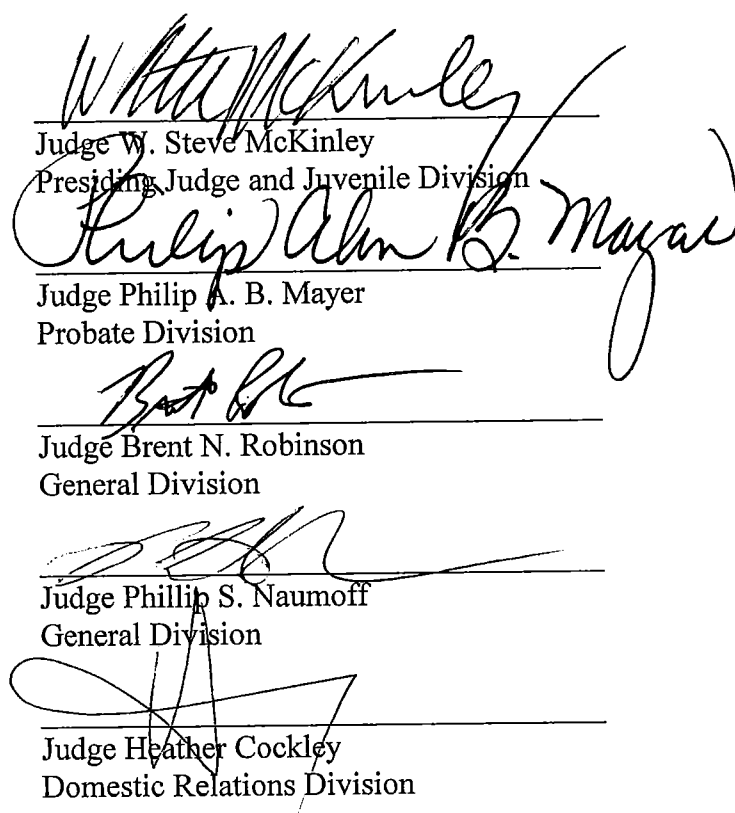 W Steve McKinley
Judge W. Steve McKinley
Presiding Judge and Juvenile Division
Philip Alan B. Mayer
Judge Philip A. B. Mayer
Probate Division
Judge Brent N. Robinson
General Division
Judge Phillip S. Naumoff
General Division
Judge Heather Cockley
Domestic Relations Division